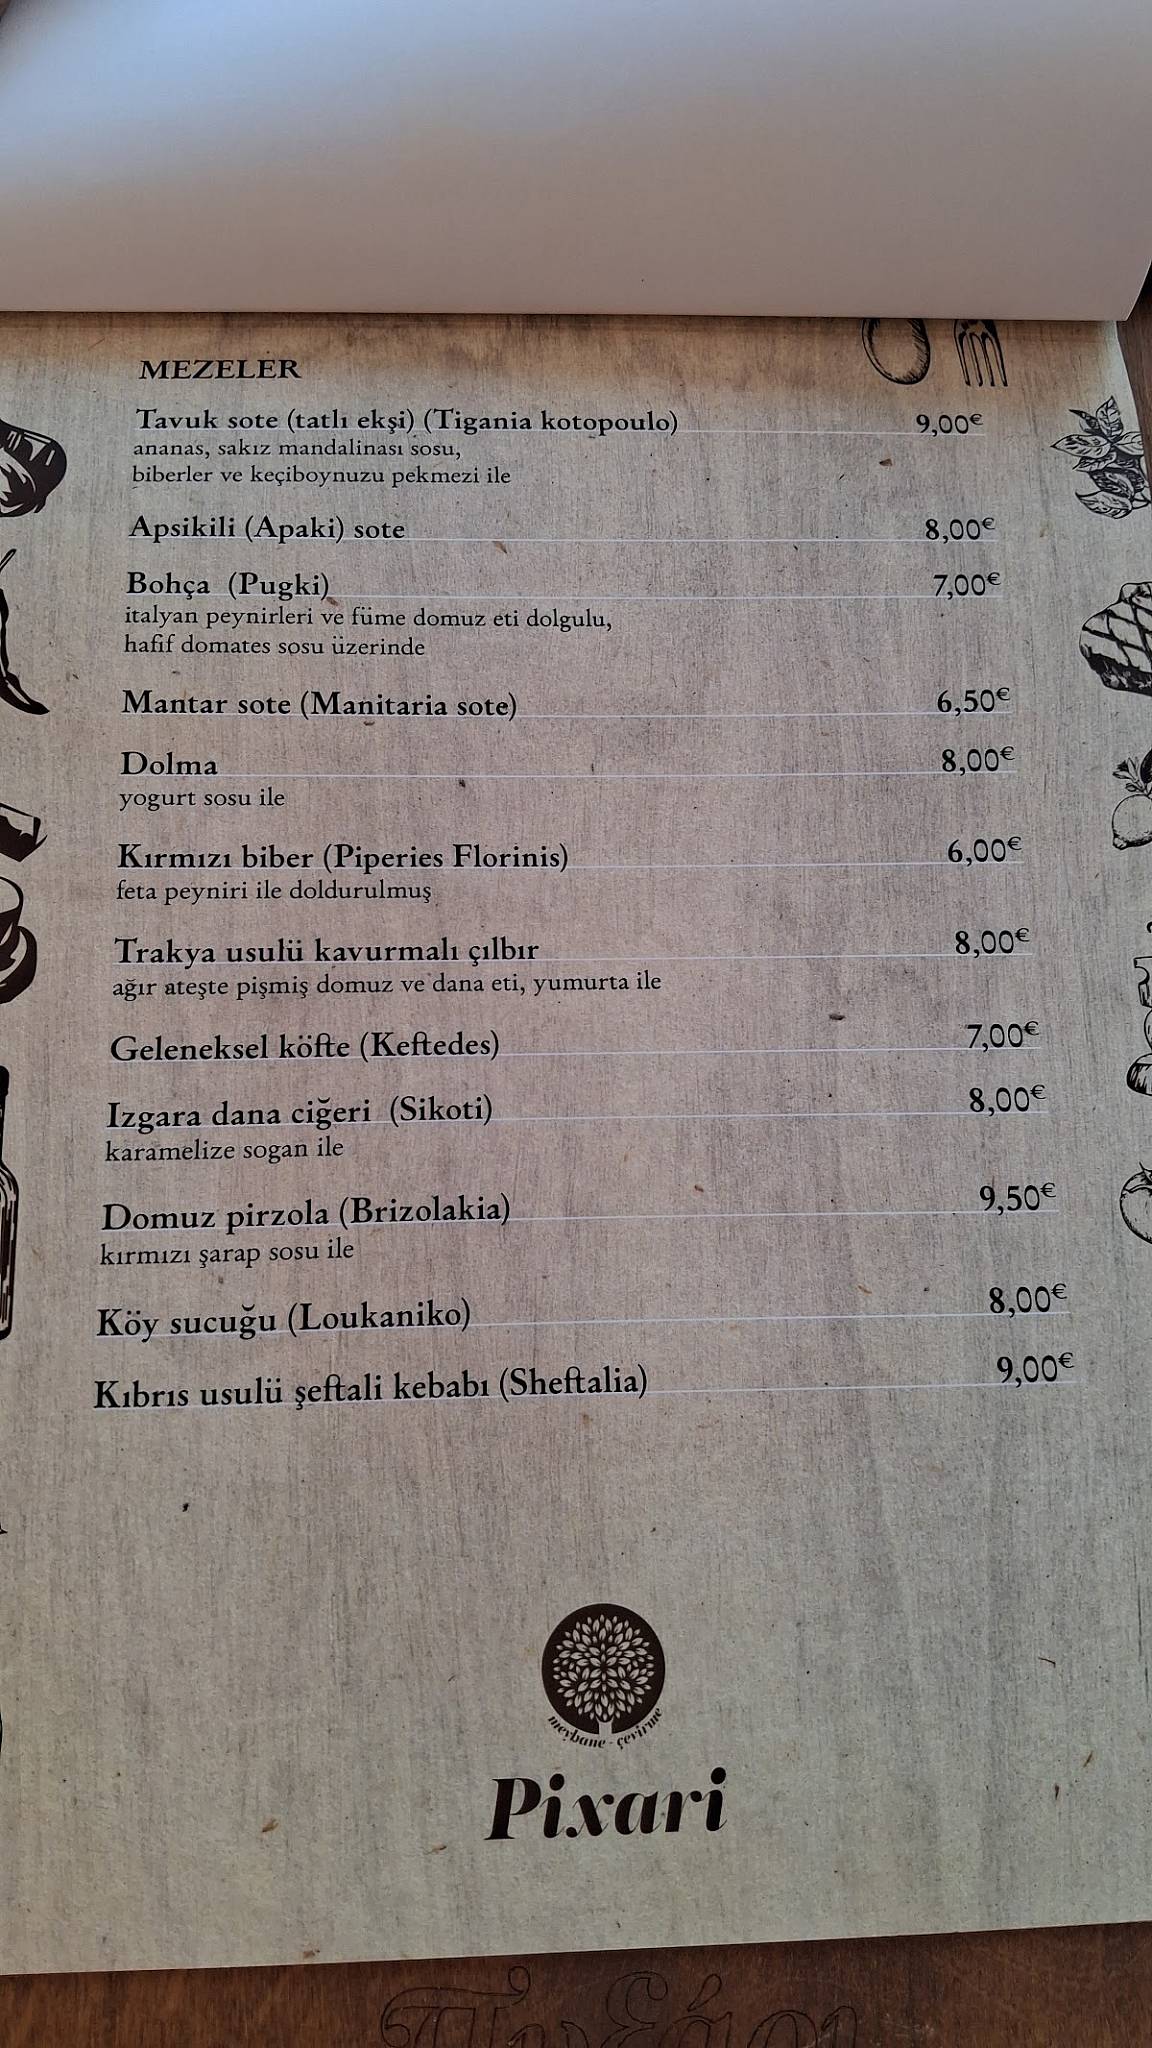 MEZELER
Tavuk sote (tatlı ekşi) (Tigania kotopoulo) 9,00€
ananas, sakız mandalinası sosu,
biberler ve keçiboynuzu pekmezi ile
Apsikili (Apaki) sote 8,00€
Bohça (Pugki) 7,00€
italyan peynirleri ve füme domuz eti dolgulu,
hafif domates sosu üzerinde
Mantar sote (Manitaria sote) 6,50€
Dolma 8,00€
yogurt sosu ile
Kırmızı biber (Piperies Florinis) 6,00€
feta peyniri ile doldurulmuş
Trakya usulü kavurmalı çılbır 8,00€
ağır ateşte pişmiş domuz ve dana eti, yumurta ile
Geleneksel köfte (Keftedes) 7,00€
Izgara dana ciğeri (Sikoti) 8,00€
karamelize sogan ile
Domuz pirzola (Brizolakia) 9,50€
kırmızı şarap sosu ile
Köy sucuğu (Loukaniko) 8,00€
Kıbrıs usulü şeftali kebabı (Sheftalia) 9,00€
meyhane - çevirme
Pixari
Πυξάρι